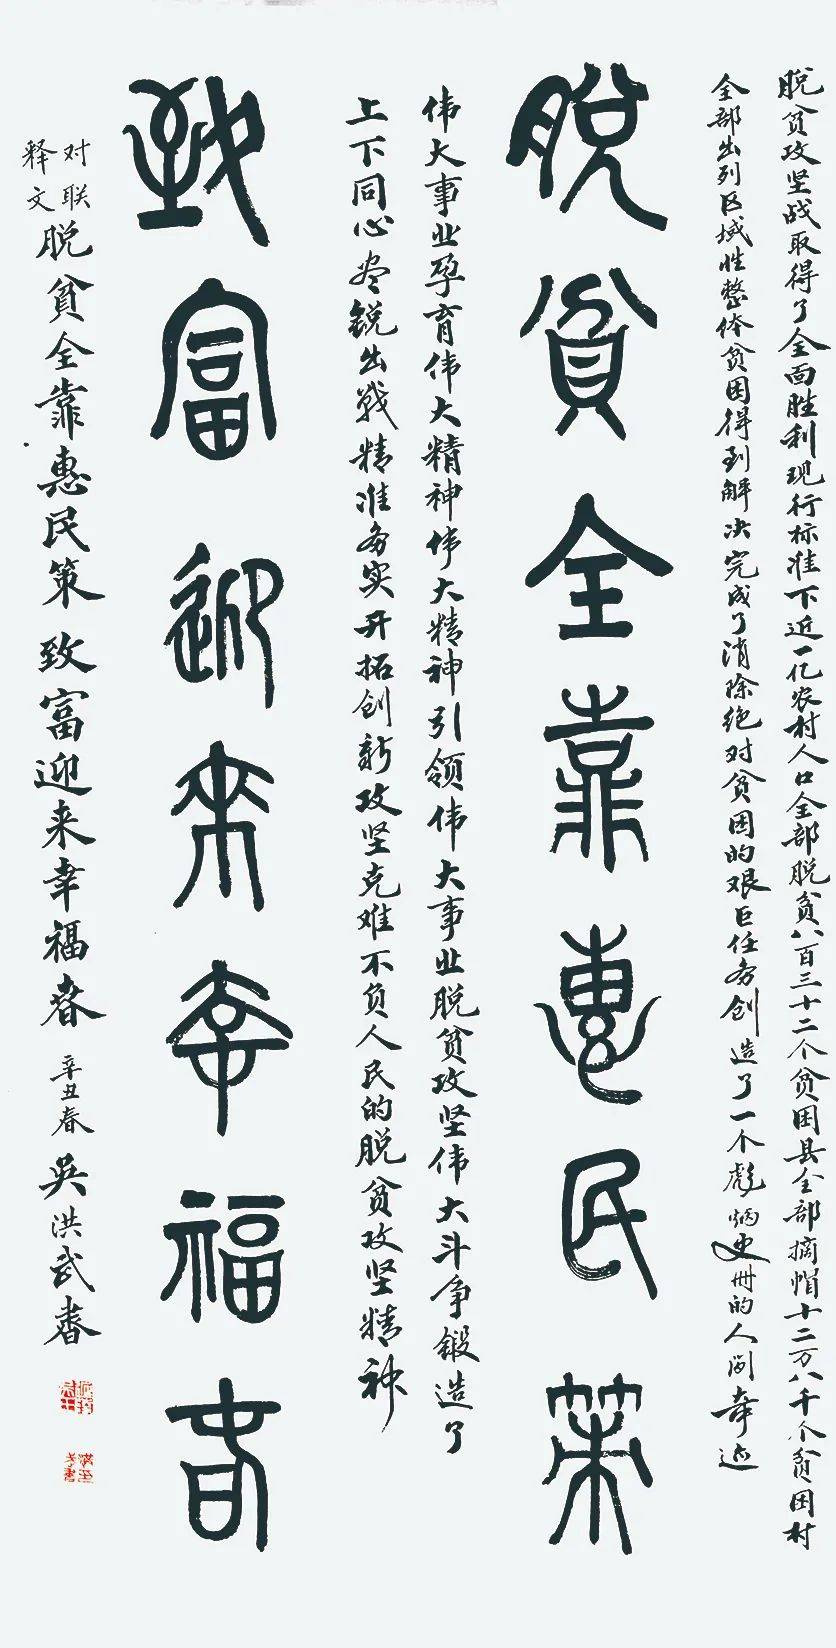 脱贫攻坚战取得了全面胜利现行标准下近一亿农村人口全部脱贫八百三十二个贫困县全部摘帽十二万八千个贫困村
全部出列区域性整体贫困得到解决完成了消除绝对贫困的艰巨任务创造了一个彪炳史册的人间奇迹
脱貧全靠惠民策
伟大事业孕育伟大精神伟大精神引领伟大事业脱贫攻坚伟大斗争锻造了
上下同心尽锐出战精准务实开拓创新攻坚克难不负人民的脱贫攻坚精神
致富迎来幸福春
对联
释文
脱貧全靠惠民策 致富迎来幸福春 辛丑春 吳洪武書